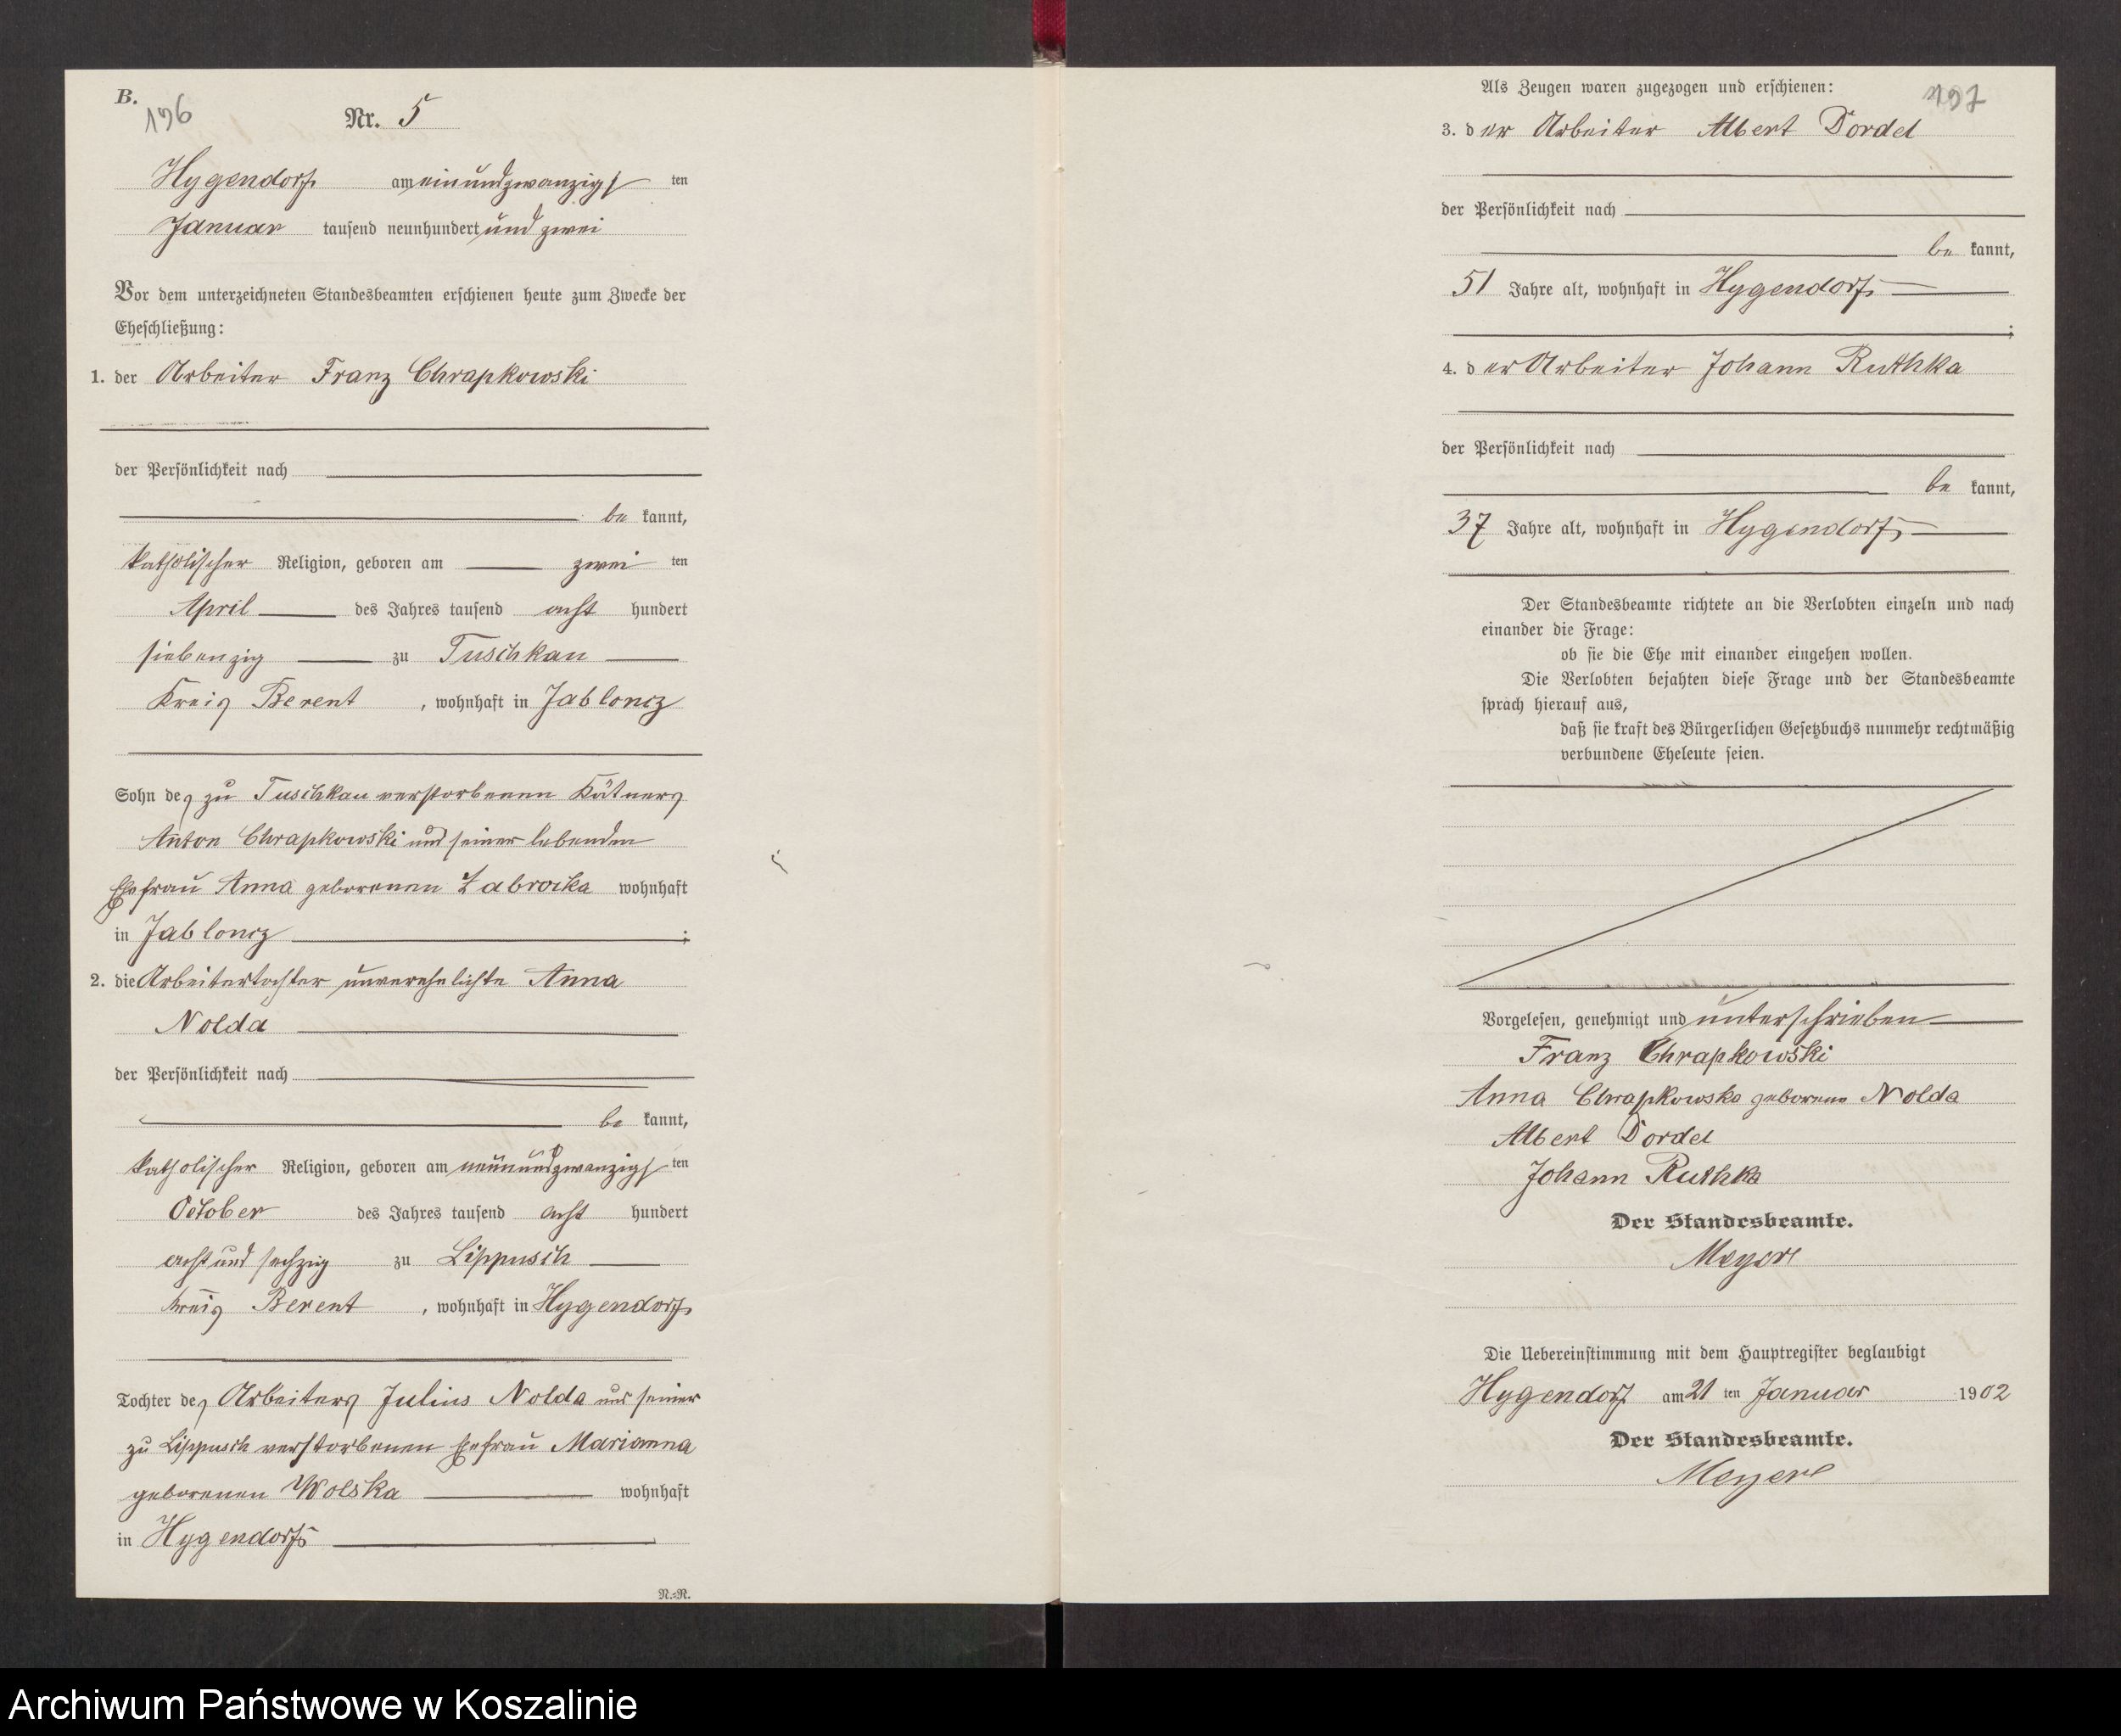 B.
196
Nr. 5
Hygendorf am einundzwanzigsten
Januar tausend neunhundert und zwei
Vor dem unterzeichneten Standesbeamten erschienen heute zum Zwecke der
Eheschließung:
1. der Arbeiter Franz Chrapkowski
der Persönlichkeit nach
be kannt,
katholischer Religion, geboren am zwei ten
April des Jahres tausend acht hundert
siebenzig zu Tuschkau
Kreis Berent, wohnhaft in Jabloncz
Sohn des zu Tuschkau verstorbenen Kätners
Anton Chrapkowski und seiner lebenden
Ehefrau Anna geborenen Zabrocka wohnhaft
in Jabloncz ;
2. die Arbeitertochter unverehelichte Anna
Nolda
der Persönlichkeit nach
be kannt,
katholischer Religion, geboren am neunundzwanzigsten
October des Jahres tausend acht hundert
acht und sechzig zu Lippusch
Kreis Berent, wohnhaft in Hygendorf
Tochter des Arbeiters Julius Nolda und seiner
zu Lippusch verstorbenen Ehefrau Marianna
geborenen Wolska wohnhaft
in Hygendorf
N.-R.
197
Als Zeugen waren zugezogen und erschienen:
3. der Arbeiter Albert Dordel
der Persönlichkeit nach
be kannt,
51 Jahre alt, wohnhaft in Hygendorf
;
4. der Arbeiter Johann Ruthka
der Persönlichkeit nach
be kannt,
37 Jahre alt, wohnhaft in Hygendorf
Der Standesbeamte richtete an die Verlobten einzeln und nach
einander die Frage:
ob sie die Ehe mit einander eingehen wollen.
Die Verlobten bejahten diese Frage und der Standesbeamte
sprach hierauf aus,
daß sie kraft des Bürgerlichen Gesetzbuchs nunmehr rechtmäßig
verbundene Eheleute seien.
Vorgelesen, genehmigt und unterschrieben
Franz Chrapkowski
Anna Chrapkowska geborene Nolda
Albert Dordel
Johann Ruthka
Der Standesbeamte.
Meyere
Die Uebereinstimmung mit dem Hauptregister beglaubigt
Hygendorf am 21 ten Januar 1902
Der Standesbeamte.
Meyere
Archiwum Państwowe w Koszalinie